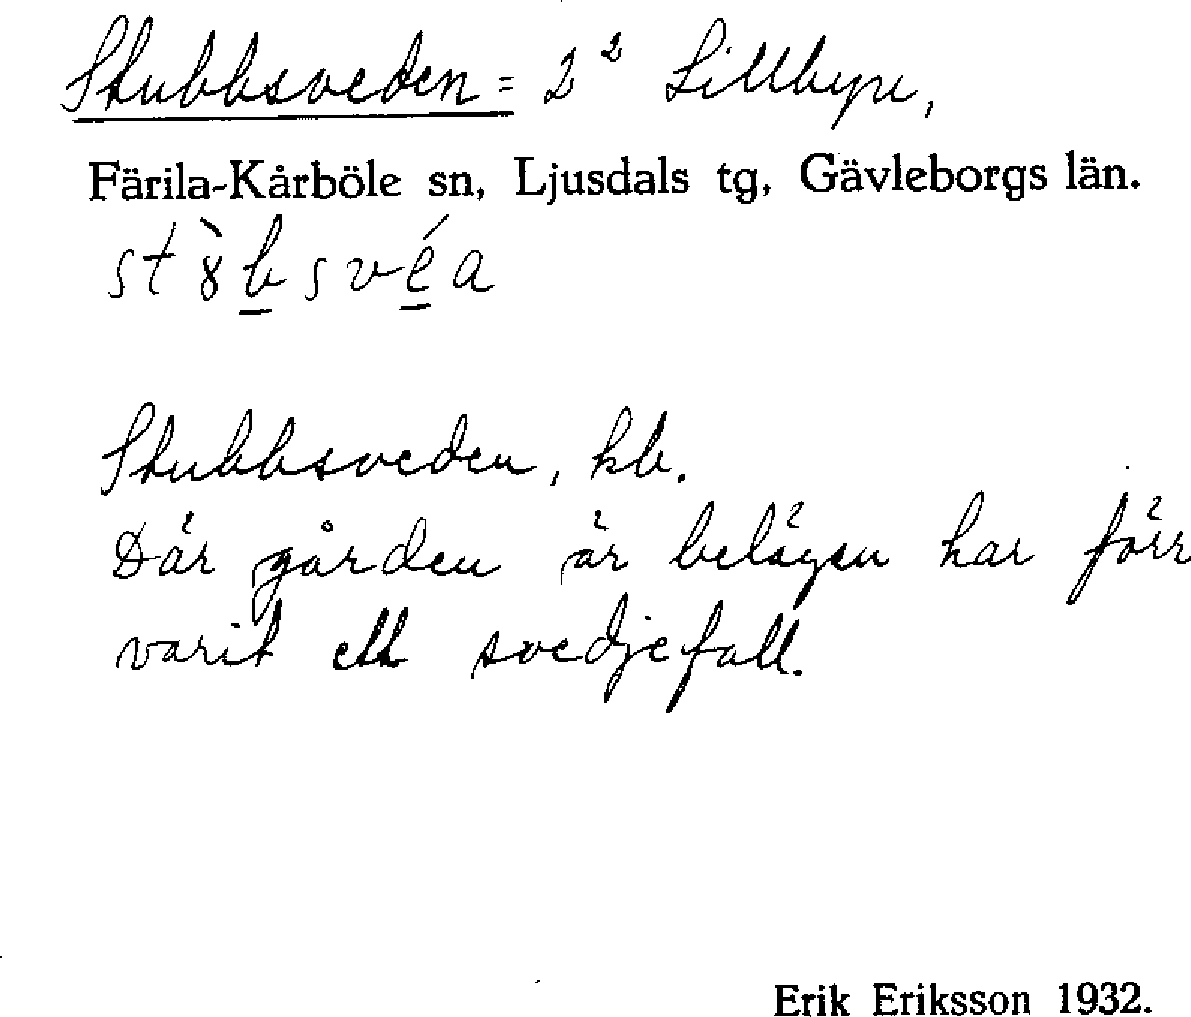 Stubbsveden = 2² Lillbyn,
Färila-Kårböle sn, Ljusdals tg, Gävleborgs län.
st ȣ̀ b̲ s v é̲ a
Stubbsveden, hb.
Där gården är belägen har förr
varit ett svedjefall.
Erik Eriksson 1932.